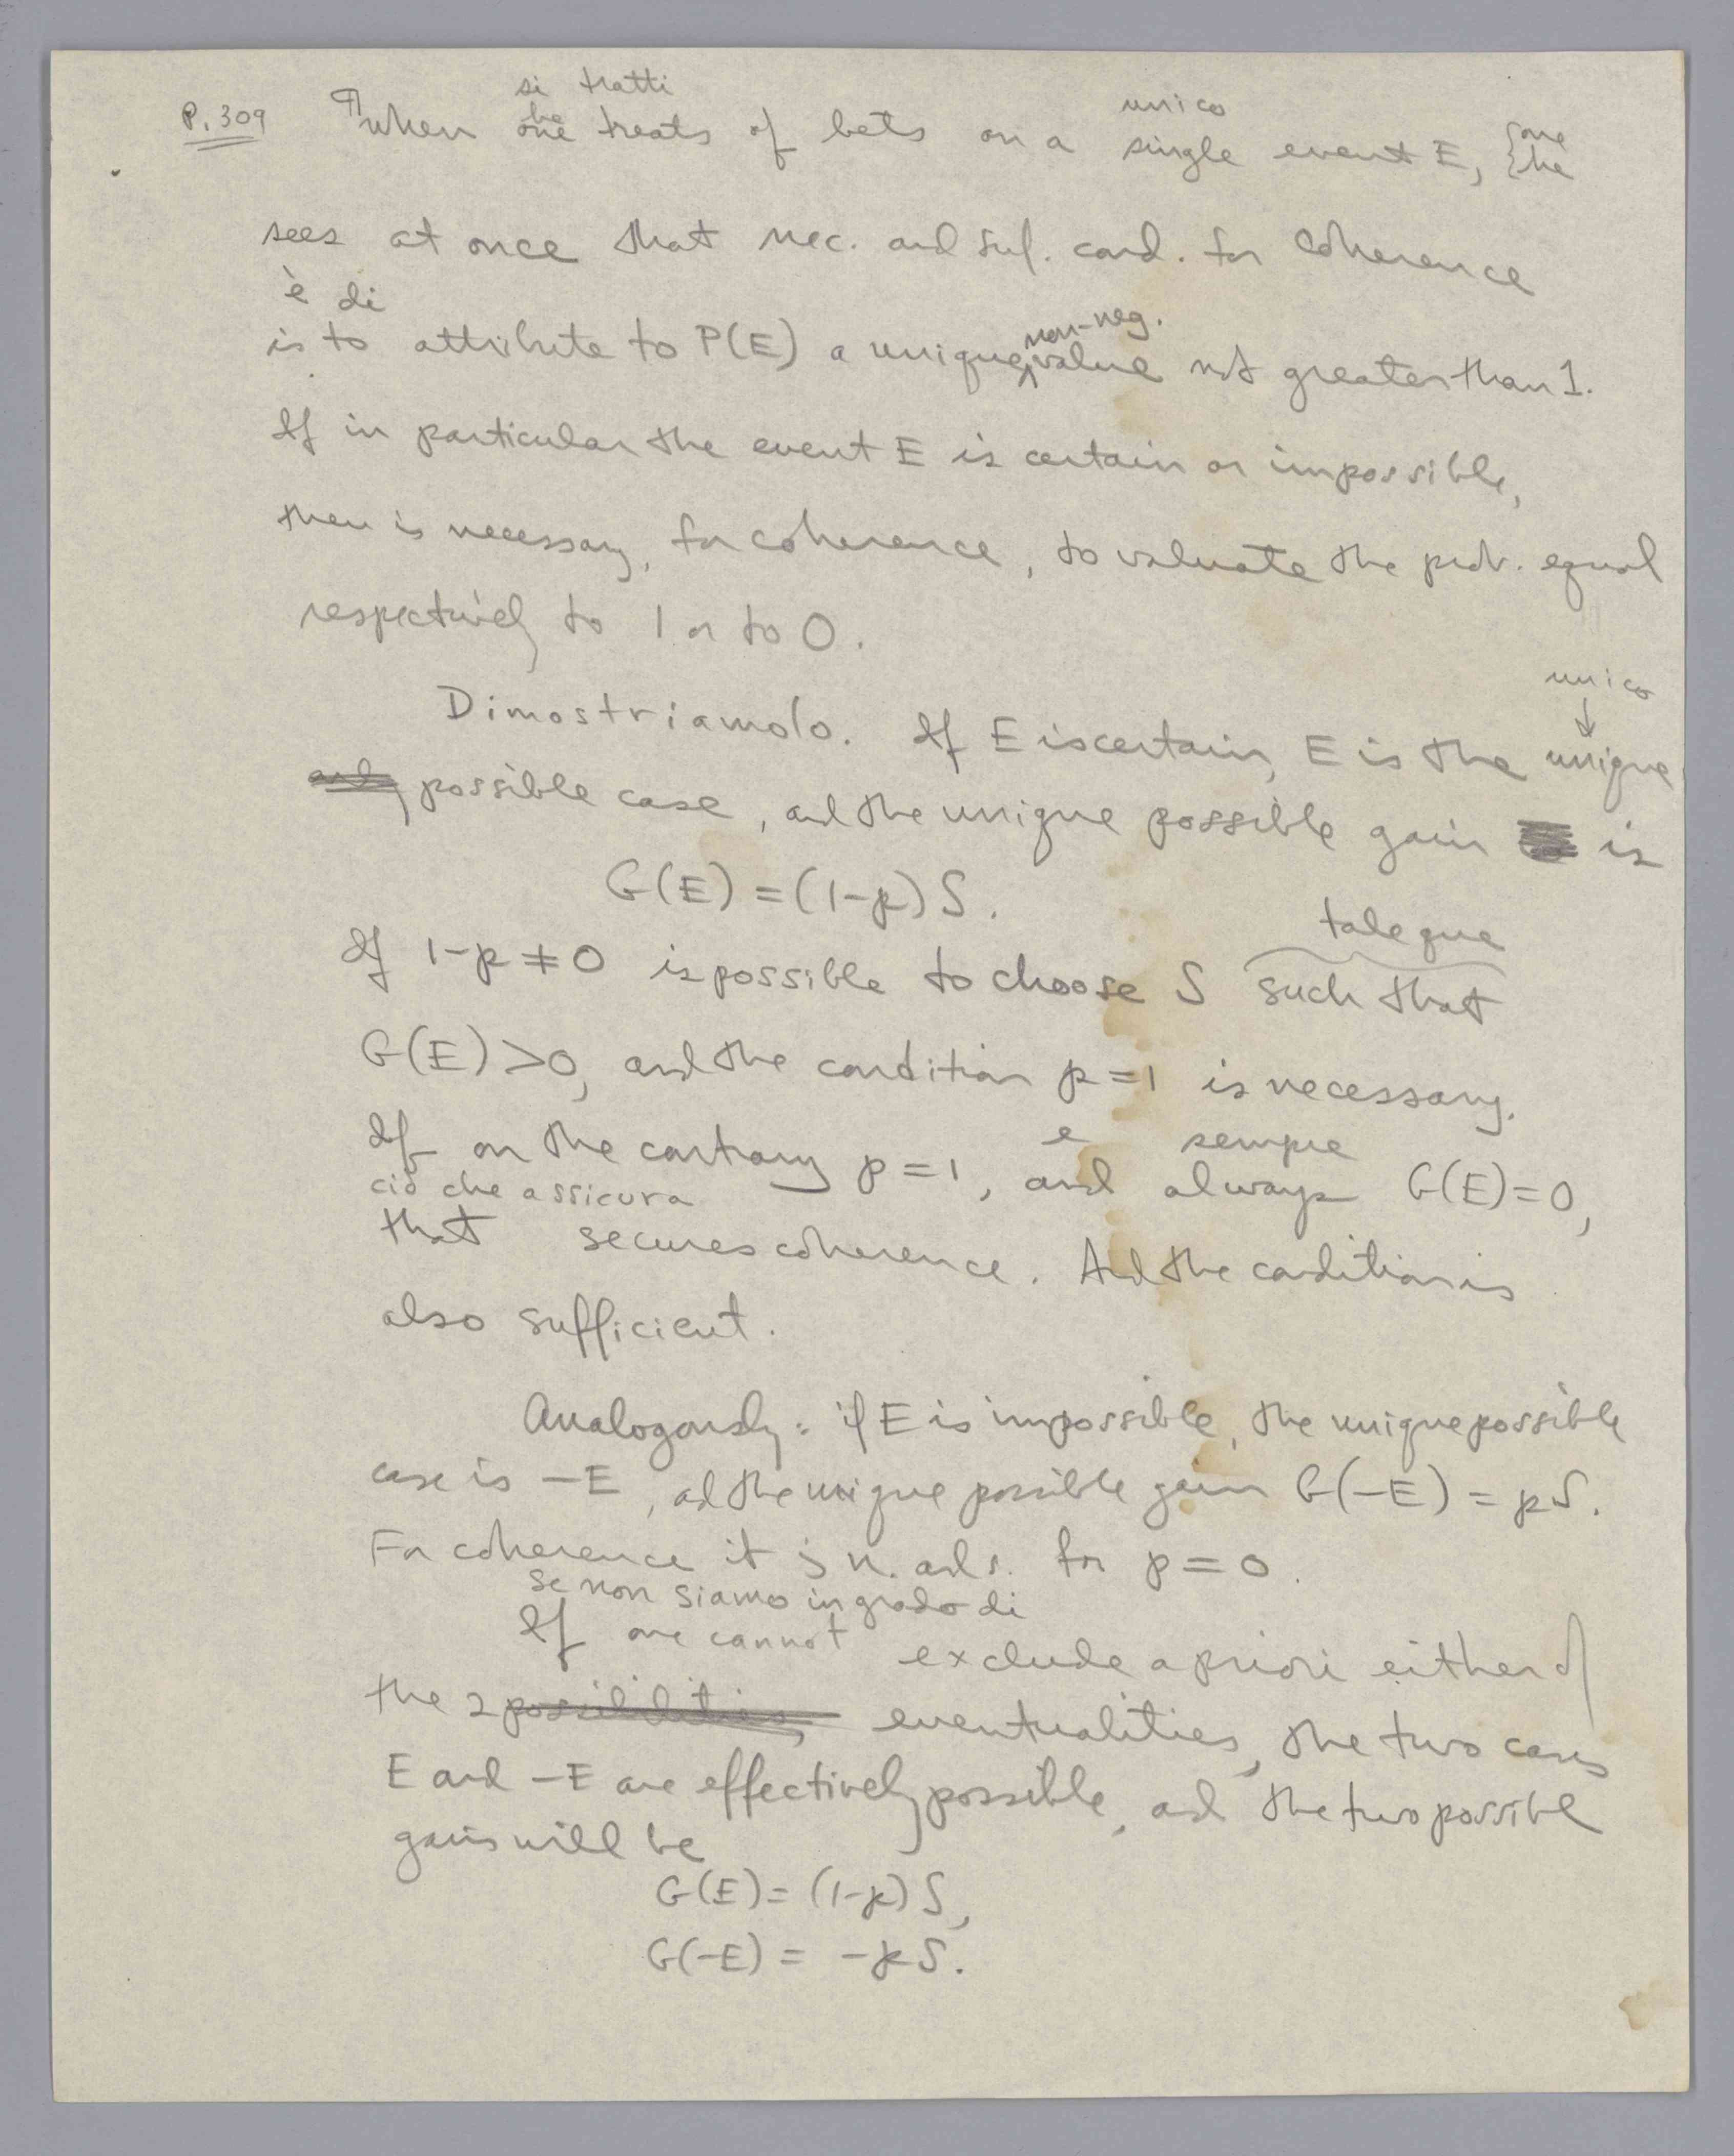 si tratti
unico
P. 309 ¶ When one treats of bets on a single event E, {one
he {he
sees at once that nec. and suf. cond. for coherence
è di
is to attribute to P(E) a unique, non-neg. value not greater than 1.
If in particular the event E is certain or impossible,
then is necessary, for coherence, to valuate the prob. equal
respectively to 1 or to 0.
unico
↓
Dimostriamolo. If E is certain, E is the unique
only possible case, and the unique possible gain is
G(E) = (1-p) S.
tale que
If 1-p ≠ 0 is possible to choose S such that
G(E) > 0, and the condition p = 1 is necessary.
e sempre
If on the contrary p = 1, and always G(E) = 0,
ciò che assicura
that secures coherence. And the condition is
also sufficient.
Analogously: if E is impossible, the unique possible
case is -E, ad the unique possible gain G(-E) = pS.
For coherence it is n. and s. for p = 0.
se non siamo in grado di
If one cannot exclude a priori either of
the 2 possibilities eventualities, the two cases
E and -E are effectively possible, ad the two possible
gains will be
G(E) = (1-p) S,
G(-E) = -pS.